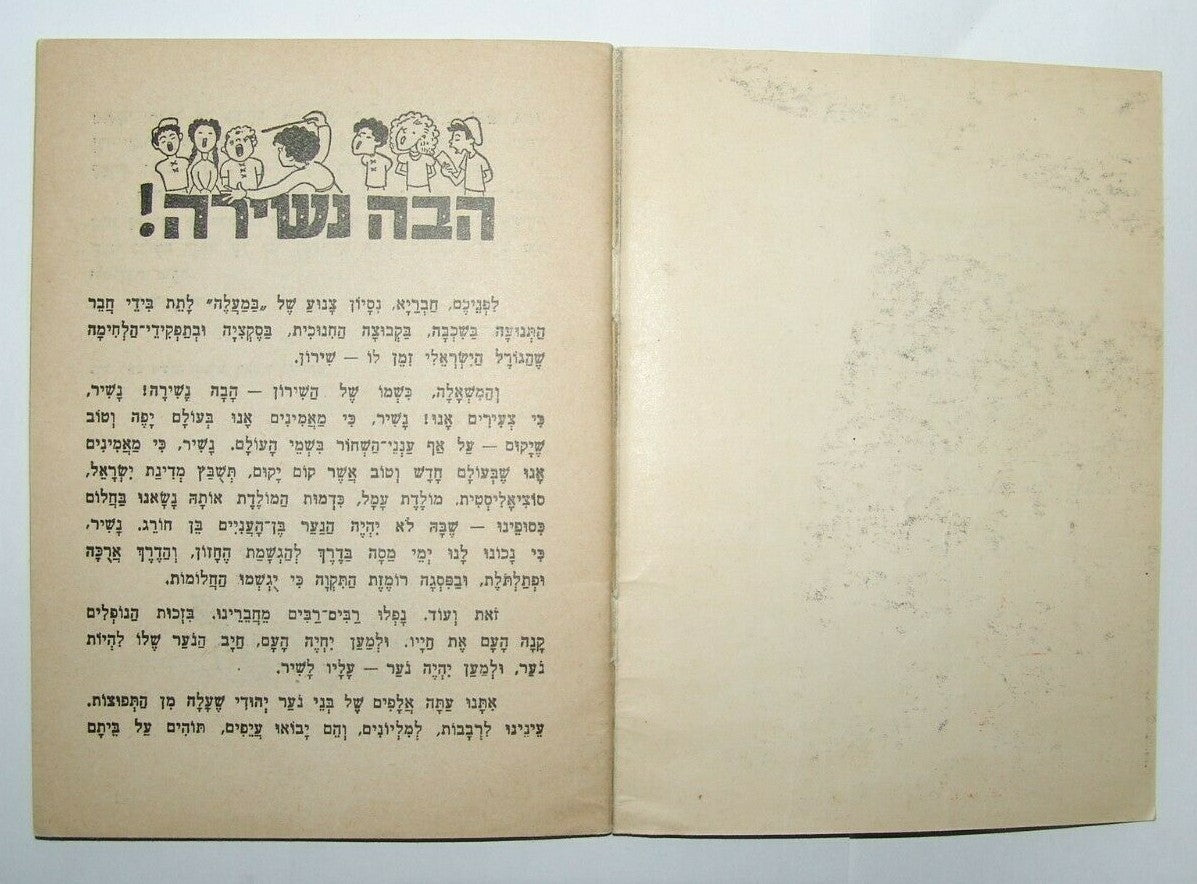 הבה נשירה!
לִפְנֵיכֶם, חַבְרַיָּא, נִסָּיוֹן צָנוּעַ שֶׁל „בַּמַּעֲלֶה” לָתֵת בִּידֵי חֲבֵר
הַתְּנוּעָה בַּשִּׁכְבָה, בַּקְּבוּצָה הַחִנּוּכִית, בַּסֶּקְצִיָה וּבְתַפְקִידֵי־הַלְּחִימָה
שֶׁהַגּוֹרָל הַיִּשְׂרְאֵלִי זִמֵּן לוֹ — שִׁירוֹן.
וְהַמִּשְׁאָלָה, כִּשְׁמוֹ שֶׁל הַשִּׁירוֹן — הָבָה נָשִׁירָה! נָשִׁיר,
כִּי צְעִירִים אָנוּ! נָשִׁיר, כִּי מַאֲמִינִים אָנוּ בְּעוֹלָם יָפֶה וְטוֹב
שֶׁיָּקוּם — עַל אַף עַנְנֵי־הַשְּׁחוֹר בִּשְׁמֵי הָעוֹלָם. נָשִׁיר, כִּי מַאֲמִינִים
אָנוּ שֶׁבְּעוֹלָם חָדָשׁ וְטוֹב אֲשֶׁר קוֹם יָקוּם, תְּשֻׁבַּץ מְדִינַת יִשְׂרָאֵל,
סוֹצִיאָלִיסְטִית. מוֹלֶדֶת עָמָל, כִּדְמוּת הַמּוֹלֶדֶת אוֹתָהּ נָשָׂאנוּ בַּחֲלוֹם
כִּסּוּפֵינוּ — שֶׁבָּהּ לֹא יִהְיֶה הַנַּעַר בֶּן־הָעֲנִיִּים בֵּן חוֹרֵג. נָשִׁיר,
כִּי נָכוֹנוּ לָנוּ יְמֵי מַסָּה בַּדֶּרֶךְ לְהַגְשָׁמַת הֶחָזוֹן, וְהַדֶּרֶךְ אֲרֻכָּה
וּפְתַלְתֹּלֶת, וּבַפִּסְגָּה רוֹמֶזֶת הַתִּקְוָה כִּי יֻגְשְׁמוּ הַחֲלוֹמוֹת.
זֹאת וְעוֹד. נָפְלוּ רַבִּים־רַבִּים מֵחֲבֵרֵינוּ. בִּזְכוּת הַנּוֹפְלִים
קָנָה הָעָם אֶת חַיָּיו. וּלְמַעַן יִחְיֶה הָעָם, חַיָּב הַנֹּעַר שֶׁלּוֹ לִהְיוֹת
נֹעַר, וּלְמַעַן יִהְיֶה נֹעַר — עָלָיו לָשִׁיר.
אִתָּנוּ עַתָּה אֲלָפִים שֶׁל בְּנֵי נֹעַר יְהוּדִי שֶׁעָלָה מִן הַתְּפוּצוֹת.
עֵינֵינוּ לִרְבָבוֹת, לְמִלְיוֹנִים, וְהֵם יָבוֹאוּ עֲיֵפִים, תּוֹהִים עַל בֵּיתָם